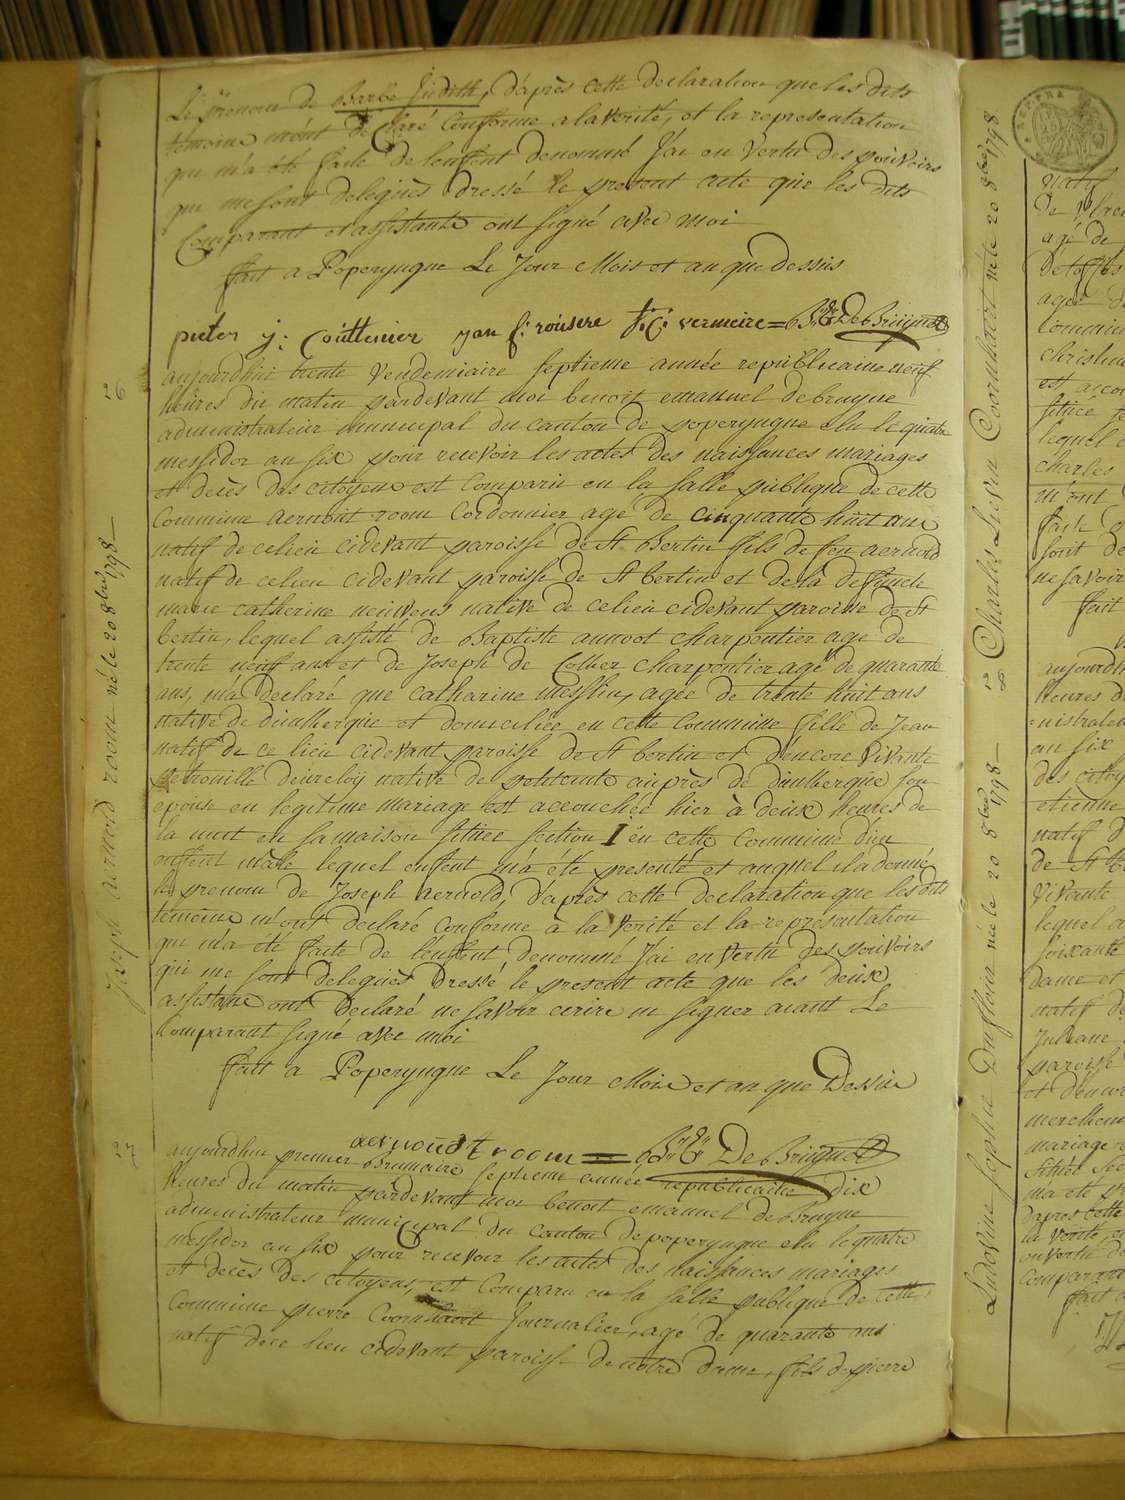 Le prenom de Barbe Judith, d'après cette declaration que les dits
temoins m'ont declaré conforme a la verité, et la representation
qui m'a été faite de l'enfent denommé J'ai en vertu des pouvoirs
qui me sont delegués dressé le present acte que les dits
Comparant et assistants ont signé avec moi
fait a Poperyngue Le Jour Mois et an que dessus
pieter j: Couttenier jan f: rousere F: C: vermeire = B: E: DeBruyne
aujourdhui trente Vendemiaire septieme année republicaine neuf
heures du matin pardevant moi benoit emanuel debruyne
administrateur municipal du canton de poperyngue elu le quatre
messidor an six pour recevoir les actes des naissances mariages
et decès des citoyens est comparu en la salle publique de cette
Commune aernout room Cordonnier agé de cinquante huit ans
natif de ce lieu cidevant paroisse de St Bertin fils de feu aernold
natif de ce lieu cidevant paroisse de St bertin et de la defuncte
marie catherine native de ce lieu cidevant paroisse de St
bertin, lequel assisté de Baptiste annoot charpentier agé de
trente neuf ans et de Joseph de Collier charpentier agé de quarante
ans, m'a declaré que catharine messlin, agée de trente huit ans
native de dunkerque et domiciliée en cette Commune fille de Jean
natif de ce lieu cidevant paroisse de St bertin et d'encore Vivante
native de petitesinte auprès de dunkerque son
epouse en legitime mariage est accouchée hier à deux heures de
la nuit en sa maison sitüee section I en cette Commune d'un
enfent mâle lequel enfent m'a été presenté et auquel il a donné
le prenom de Joseph aernold, d'après cette declaration que les dits
temoins m'ont declaré Conforme à la verité et la representation
qui m'a été faite de l'enffent denommé J'ai en vertu des pouvoirs
qui me sont delegués dressé le present acte que les deux
assistans ont declaré ne savoir ecrire ni signer aiant Le
Comparant signé avec moi
fait a Poperyngue Le Jour Mois et an que Dessus
aernoudt room = B: E: DeBruyne
27
aujourdhui premier Brumaire septieme année republicaine dix
heures du matin pardevant moi benoit emanuel debruyne
administrateur municipal du canton de poperyngue elu le quatre
messidor an six pour recevoir les actes des naissances mariages
et decès des citoyens, est Comparu en la salle publique de cette
Commune pierre Coornhaert Journalier, agé de quarante ans
natif de ce lieu cidevant paroisse de notre dame, fils de pierre
Joseph Aernold room né le 20 8bre 1798
Ludovine Sophie Duflou née le 20 8bre 1798
Charles Livin Coornhaert né le 20 8bre 1798
natif
agé de
est acco
lequel e
charles
m'ont
ne savoir
fait
aujourdh
heures d
an six
des city
etienne
natif d
Vivante
lequel a
soixante
dame et
natif de
paroisse
mariage
m'a été p
la verité
Comparant
fait a